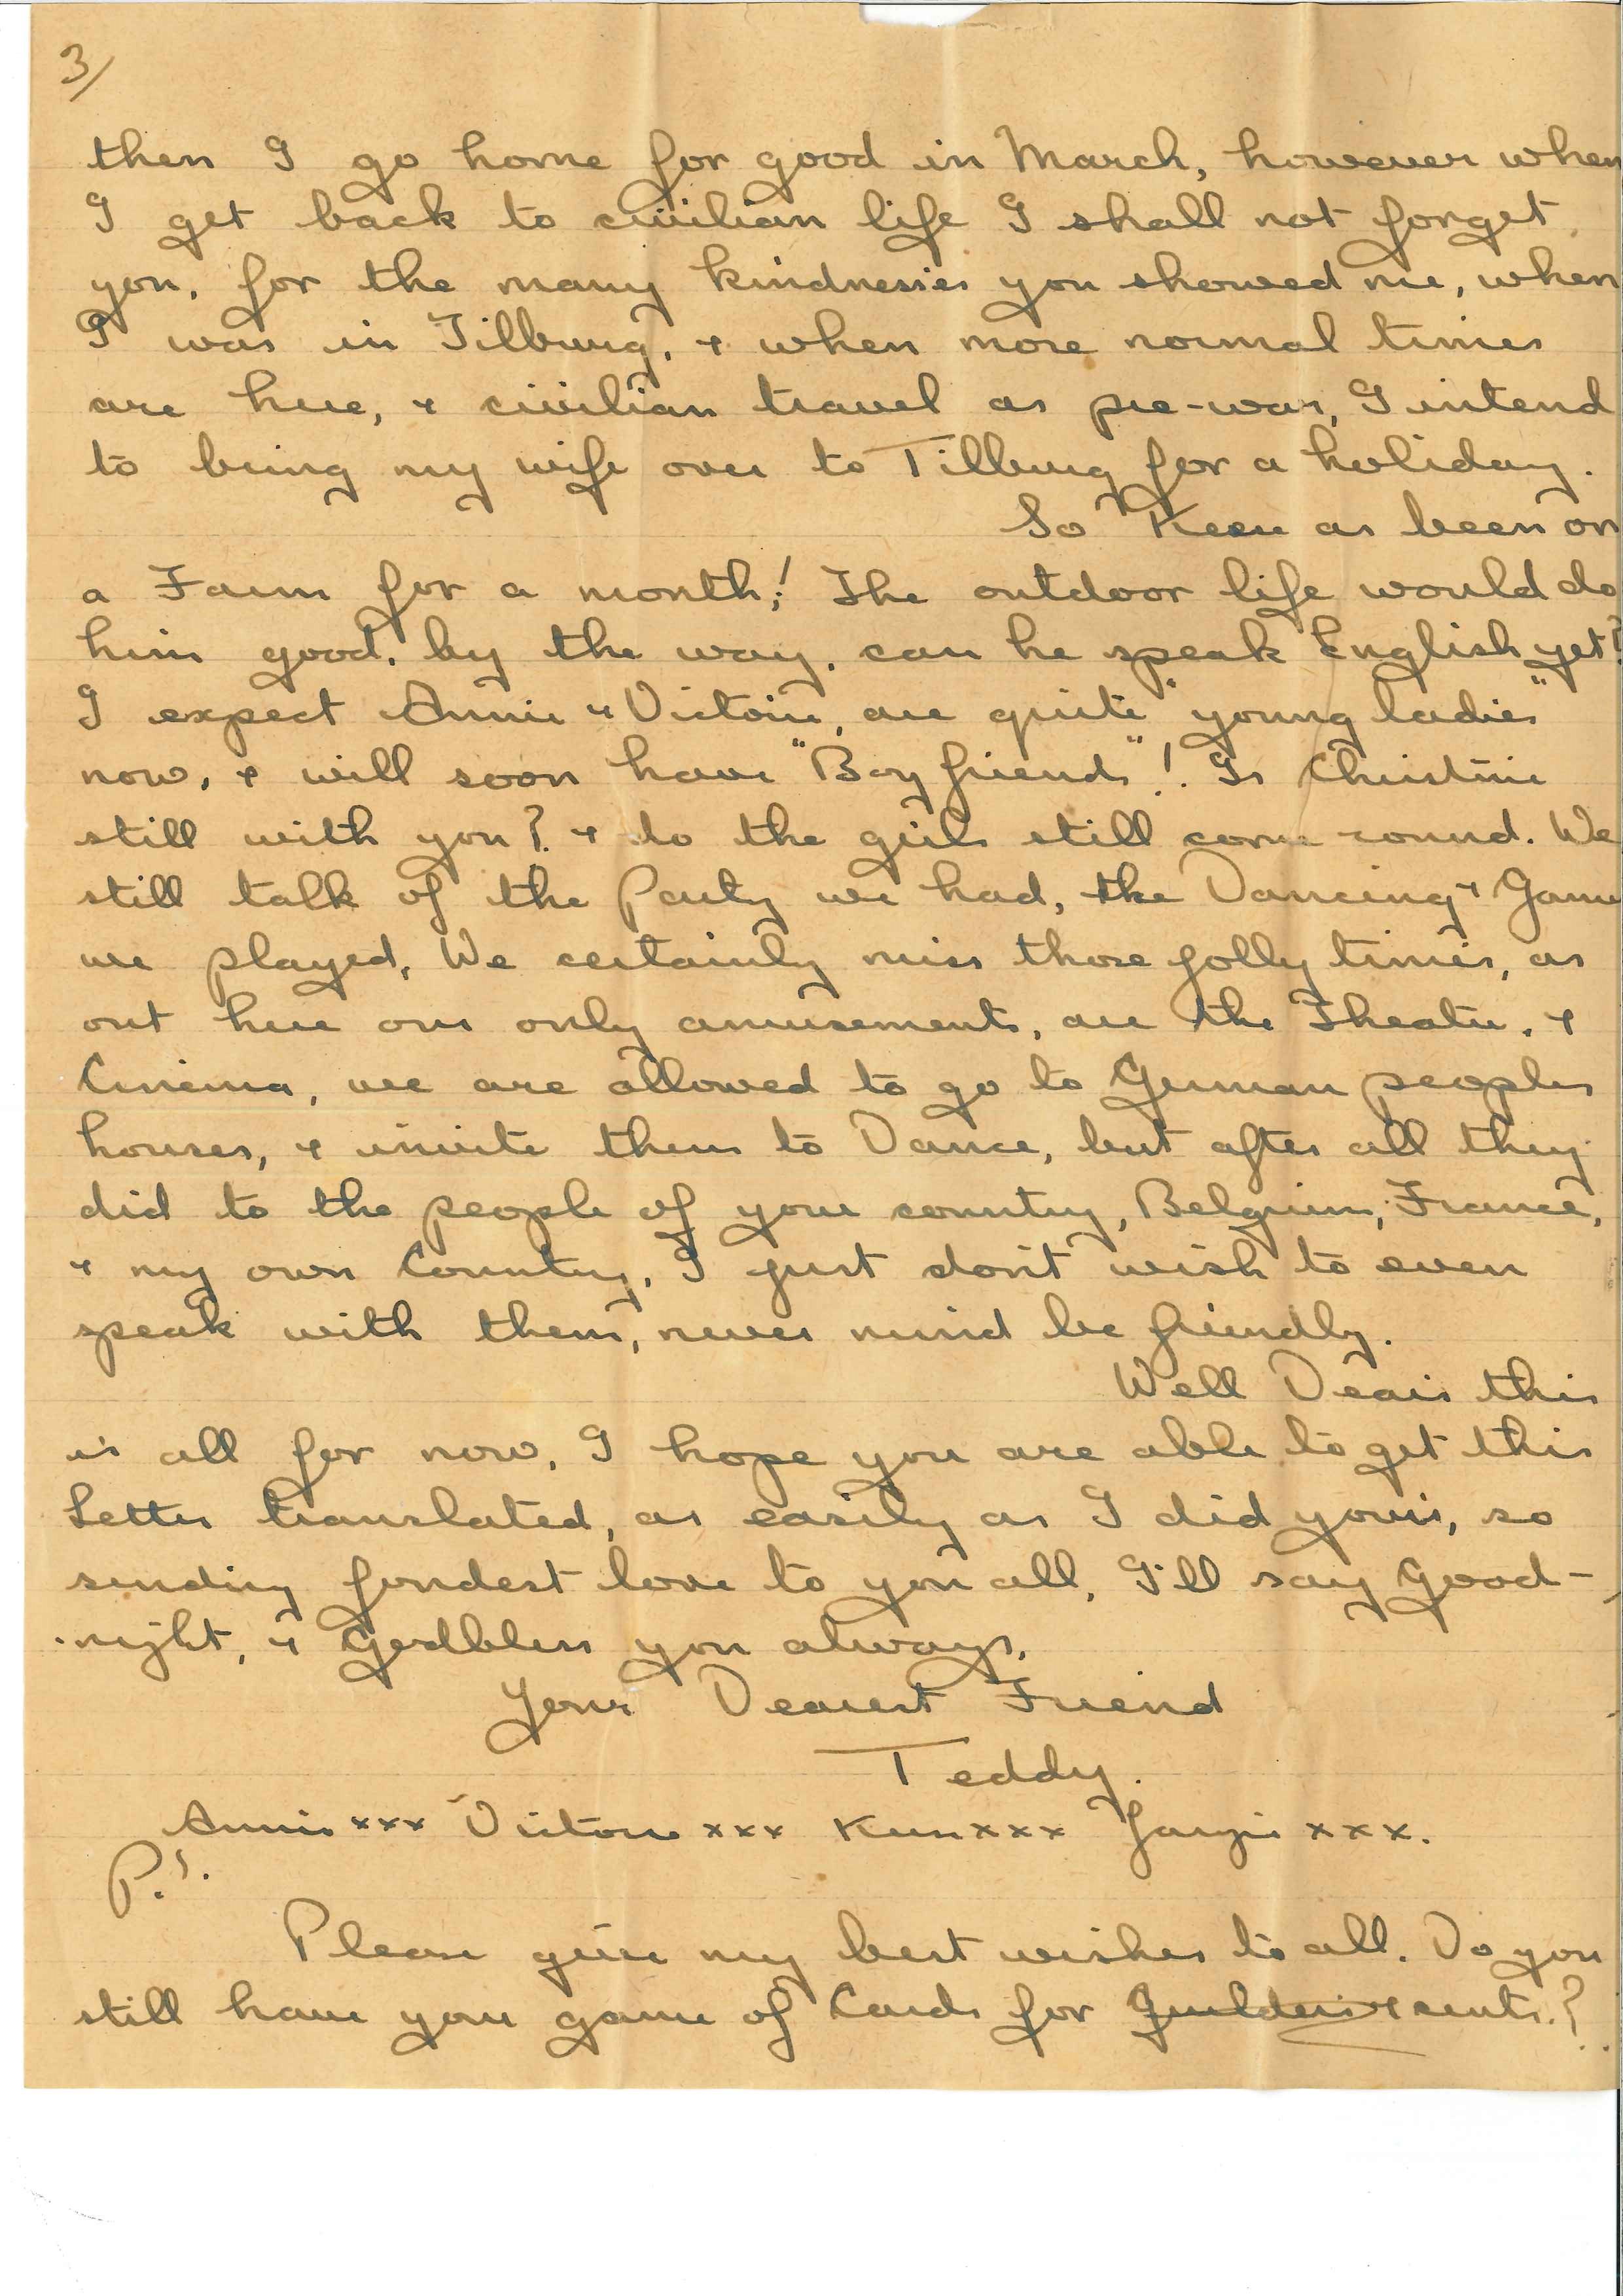 3/
then I go home for good in March, however when
I get back to civilian life I shall not forget
you, for the many kindnesses you showed me, when
I was in Tilburg, & when more normal times
are here, & civilian travel as pre-war, I intend
to bring my wife over to Tilburg for a holiday.
So Keen as been on
a Farm for a month,! The outdoor life would do
him good, by the way, can he speak English yet?
I expect Annie & Victorie, are quite "young ladies"
now, & will soon have "Boy friends"! Is Christine
still with you? & do the girls still come round. We
still talk of the Party we had, the Dancing & Games
we played, We certainly miss those jolly times, as
out here our only amusements, are the Theatre, &
Cinema, we are allowed to go to German peoples
houses, & invite them to Dance, but after all they
did to the people of your country, Belgium, France,
& my own Country, I just don't wish to even
speak with them, never mind be friendly.
Well Dears this
is all for now, I hope you are able to get this
Letter translated, as easily as I did yours, so
sending fondest love to you all, I'll say Good-
-night, & Godbless you always,
Your Dearest Friend
Teddy.
Annie xxx Victorie xxx Keen xxx xxx.
P.S.
Please give my best wishes to all. Do you
still have your game of Cards for Guilders & cents.?